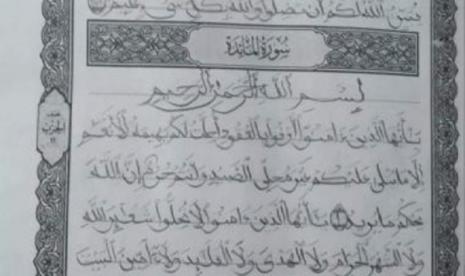 يبين الله لكم أن تضلوا والله بكل شيء عليم
سورة المائدة
بسم الله الرحمن الرحيم
يأيها الذين ءامنوا أوفوا بالعقود أحلت لكم بهيمة الأنعم
إلا ما يتلى عليكم غير محلي الصيد وأنتم حرم إن الله
يحكم ما يريد ١ يأيها الذين ءامنوا لا تحلوا شعئر الله
ولا الشهر الحرام ولا الهدي ولا القلئد ولا ءامين البيت
نصف
الحزب